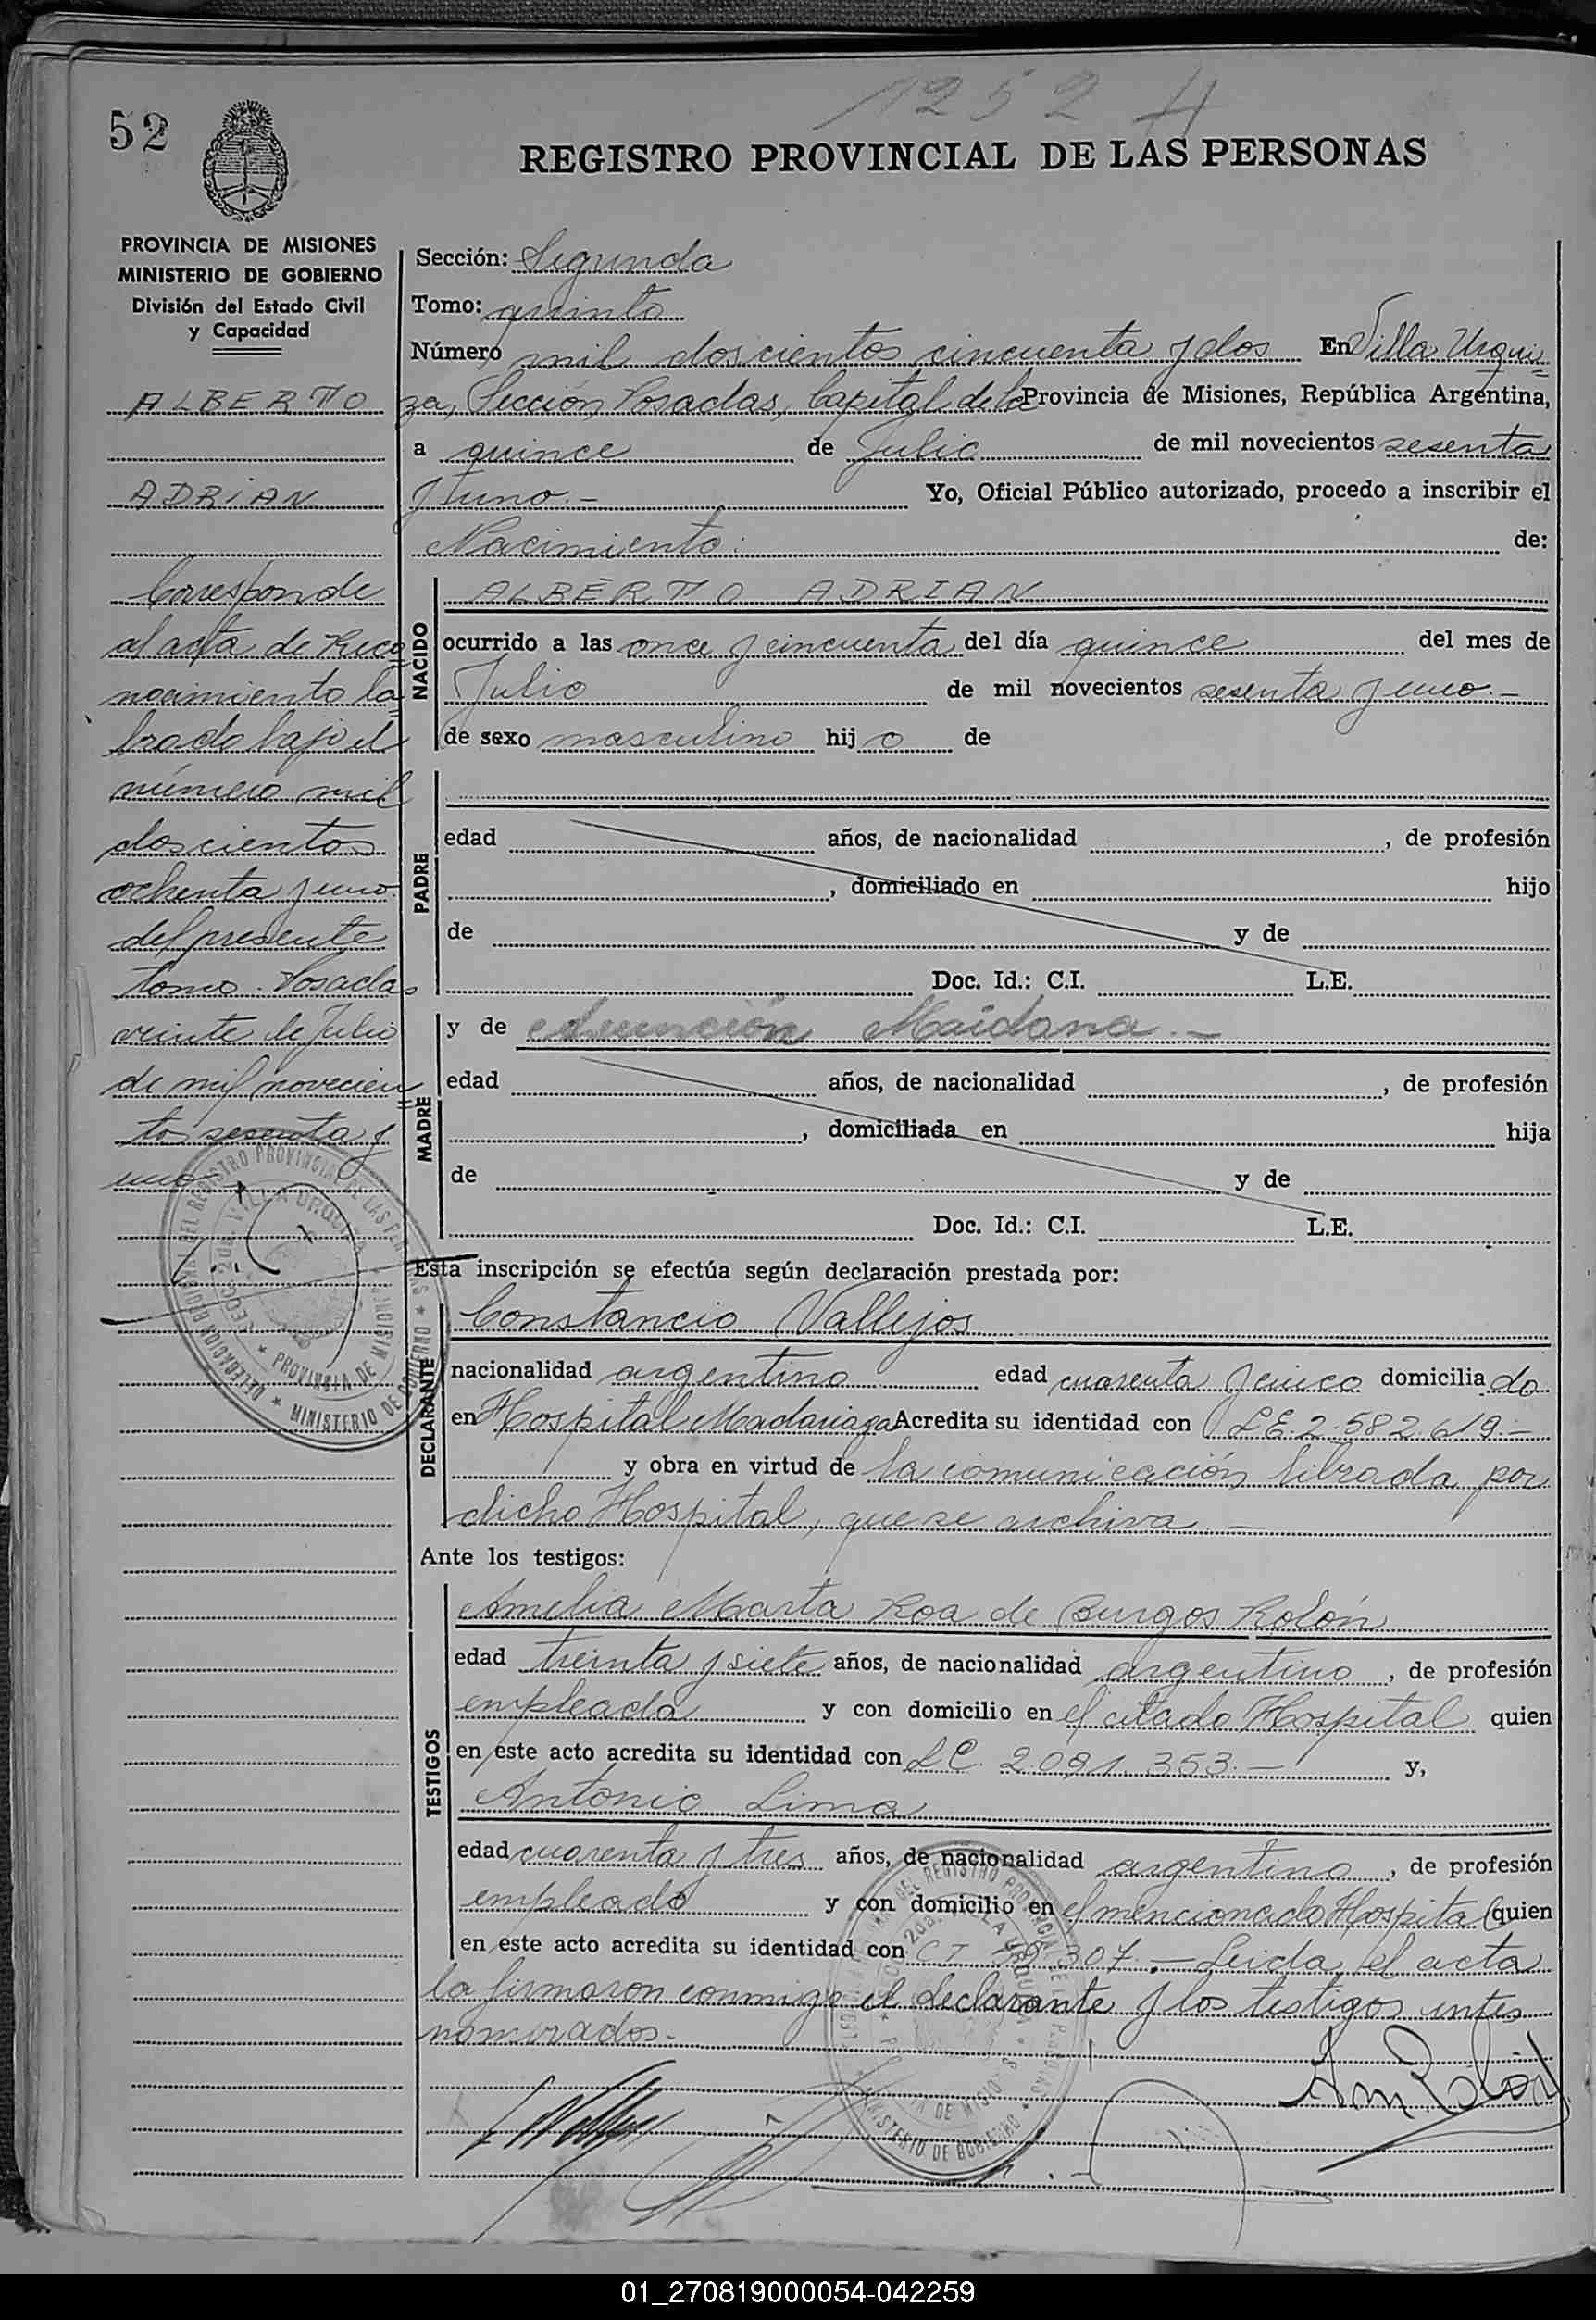 1252 A
52
REGISTRO PROVINCIAL DE LAS PERSONAS
PROVINCIA DE MISIONES
MINISTERIO DE GOBIERNO
División del Estado Civil
y Capacidad
ALBERTO
ADRIAN
Corresponde
al acta de Reco
nocimiento la
brado bajo el
número mil
doscientos
ochenta y uno
del presente
tomo. Posadas
veinte de Julio
de mil novecien
tos sesenta y
uno
Sección: Segunda
Tomo: quinto
Número mil doscientos cincuenta y dos En Villa Urqui
za, Sección Posadas, Capital de la Provincia de Misiones, República Argentina,
a quince de Julio de mil novecientos sesenta
y uno.- Yo, Oficial Público autorizado, procedo a inscribir el
Nacimiento: de:
NACIDO
ALBERTO ADRIAN
ocurrido a las once y cincuenta del día quince del mes de
Julio de mil novecientos sesenta y uno.-
de sexo masculino hijo de
PADRE
edad años, de nacionalidad , de profesión
, domiciliado en hijo
de y de
Doc. Id.: C.I. L.E.
MADRE
y de Asunción Maidana.-
edad años, de nacionalidad , de profesión
, domiciliada en hija
de y de
Doc. Id.: C.I. L.E.
Esta inscripción se efectúa según declaración prestada por:
DECLARANTE
Constancio Vallejos
nacionalidad argentino edad cuarenta y cinco domiciliado
en Hospital Madariaga Acredita su identidad con LE. 2.582.619.-
y obra en virtud de la comunicación librada por
dicho Hospital, que se archiva.-
Ante los testigos:
TESTIGOS
Amelia Marta Roa de Burgos Rolón
edad treinta y siete años, de nacionalidad argentino, de profesión
empleada y con domicilio en el citado Hospital quien
en este acto acredita su identidad con LC. 2.091.353.- y,
Antonio Lima
edad cuarenta y tres años, de nacionalidad argentino, de profesión
empleado y con domicilio en el mencionado Hospital quien
en este acto acredita su identidad con CI 307.- Leida el acta
la firmaron conmigo el declarante y los testigos antes
nombrados.-
01_270819000054-042259